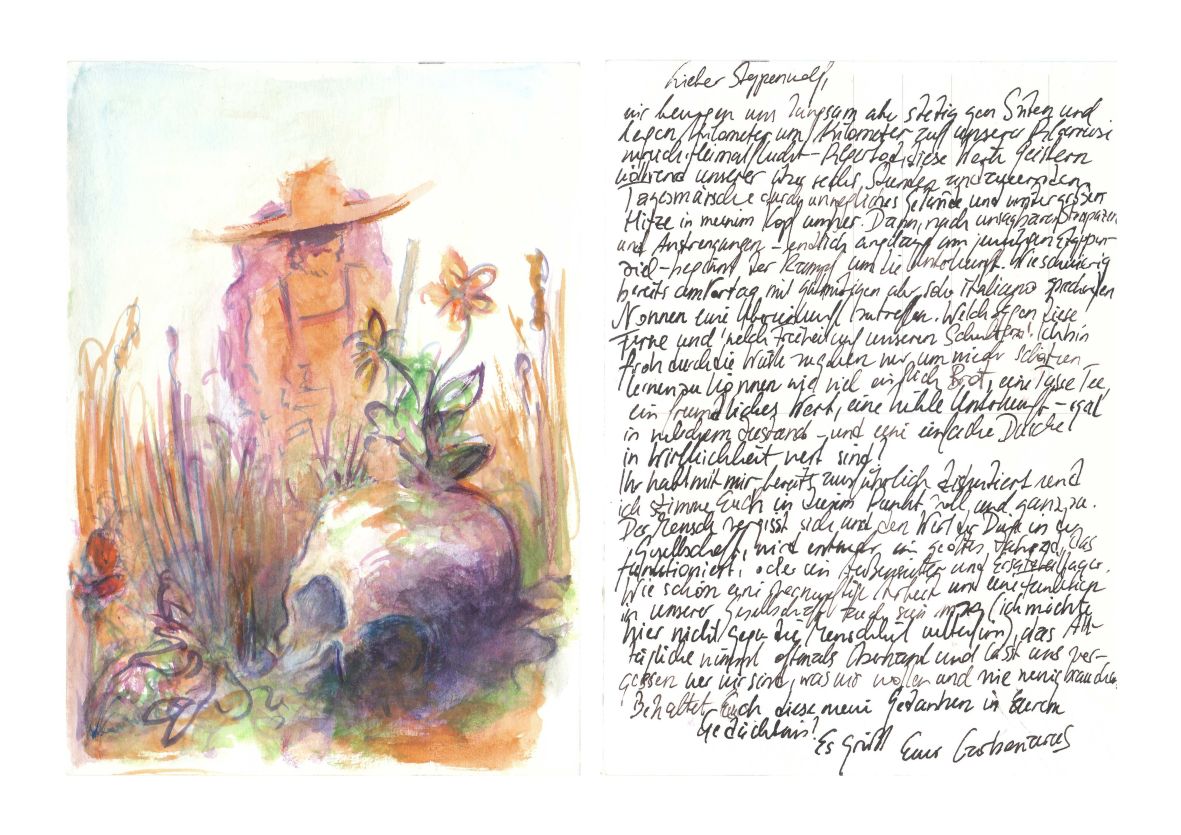 Lieber Steppenwolf,
wir bewegen uns langsam aber stetig gen Süden und
legen Kilometer um Kilometer auf unserer Pilgerreise
zurück. Heimatflucht - diese Worte geistern
während unserer über sechs Stunden andauernden
Tagesmärsche durch unwegliches Gelände und unter großer
Hitze in meinem Kopf umher. Dann, nach unsagbaren Strapazen
und Anstrengungen - endlich angelangt am jeweiligen Etappen-
ziel - beginnt der Kampf um die Unterkunft. Wie schwierig
bereits am Vortag mit gutmütigen aber solo italiano sprechenden
Nonnen eine Übereinkunft zu treffen. Welch Segen diese
Ferne und welch Freiheit auf unseren Schultern! Ich bin
froh durch die Welt zu gehen nur um mehr schätzen
lernen zu können wie viel einfach Brot, eine Tasse Tee,
ein freundliches Wort, eine kühle Unterkunft - egal
in welchem Zustand - und eine einfache Dusche
in Wirklichkeit wert sind!
Ihr habt mit mir bereits ausführlich diskutiert und
ich stimme Euch in diesem Punkt voll und ganz zu.
Der Mensch vergisst sich und den Wert der Dinge in der
Gesellschaft, wird entweder ein großes Zahnrad, das
funktioniert, oder ein Außenseiter und
Wie schön eine Arbeit und eine Funktion
in unserer Gesellschaft auch sein mag (ich möchte
hier nicht gegen die Menschheit wettern), das All-
tägliche nimmt oftmals Überhand und lässt uns ver-
gessen wer wir sind, was wir wollen und wie wenig brauchen.
Behaltet Euch diese meine Gedanken in Eurem
Gedächtnis!
Es grüßt Euer